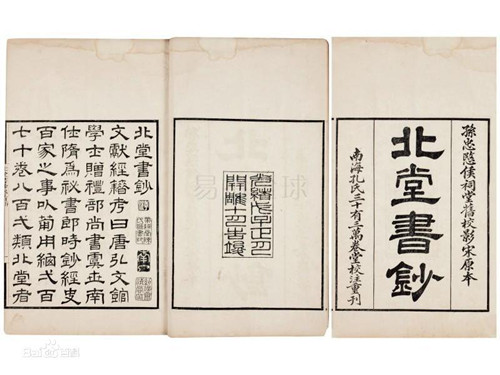 孫忠愍侯祠堂舊校影宋原本
北堂書鈔
南海孔氏三十有三萬卷堂校注重刊
光緒戊子
開雕
北堂書鈔
文獻經籍考曰唐弘文館
學士贈禮部尚書虞世南
仕隋爲祕書郎時鈔經史
百家之事㕥葡用緫弌百
七十卷八百弌類北堂者
易 球
Bai百科